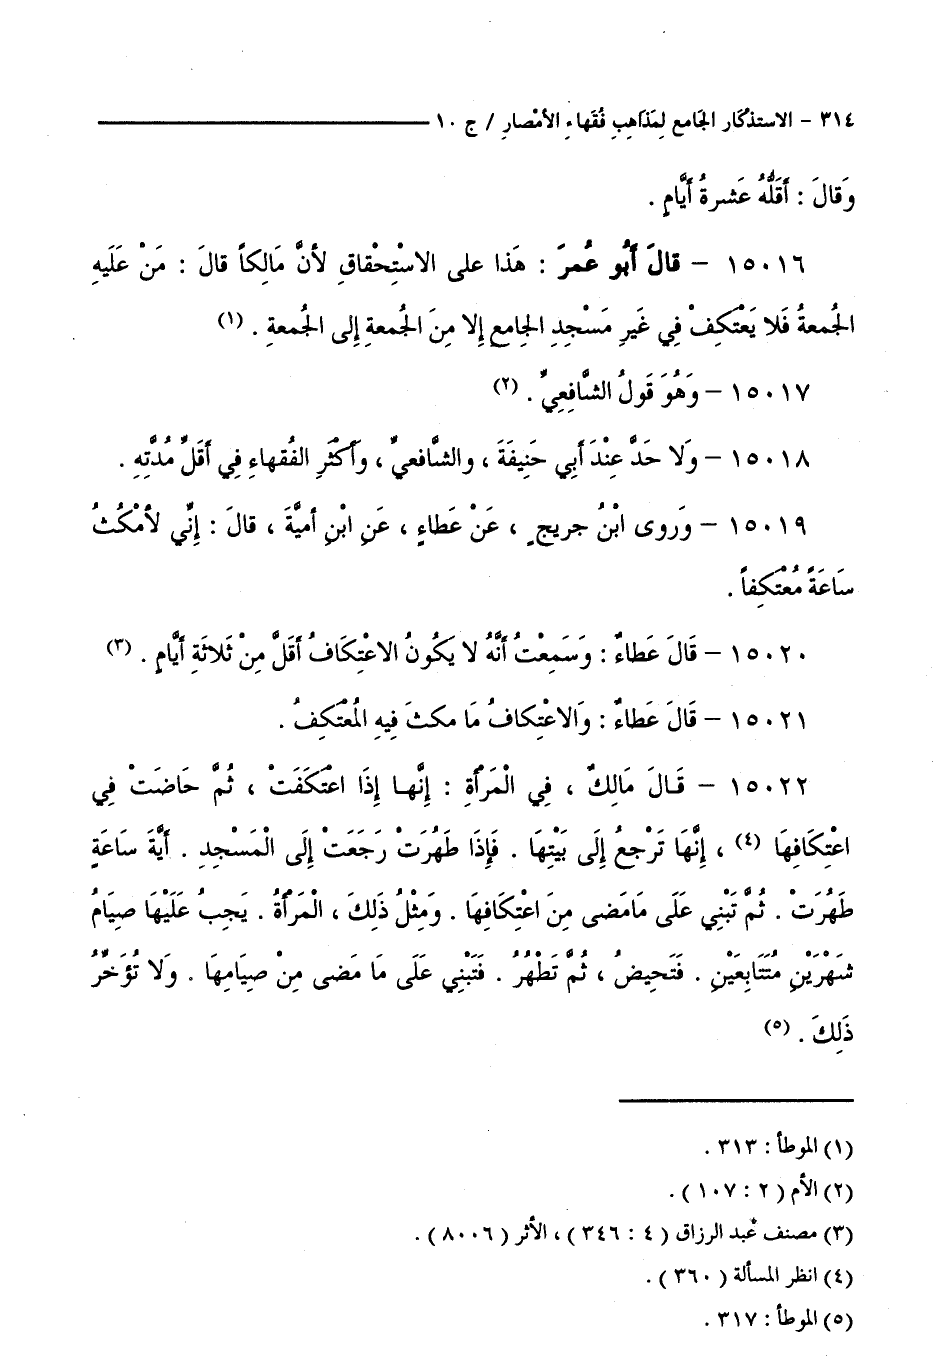 ٣١٤ - الاستذْكَار الجَامع لِمَذاهِبِ فُقَهاءِ الأمْصارِ / ج ١٠
وَقالَ : أقَلُّهُ عَشرةُ أيَّامٍ .
١٥٠١٦ - قالَ أَبُو عُمرَ : هَذا على الاسْتِحْقاقِ لأنَّ مَالِكاً قالَ : مَنْ عَلَيهِ
الجُمعةُ فَلا يَعْتكِفْ فِي غَيرِ مَسْجدِ الجامعِ إِلا مِنَ الجُمعةِ إِلى الجُمعةِ . (١)
١٥٠١٧ - وَهُوَ قَولُ الشَّافِعِيِّ . (٢)
١٥٠١٨ - وَلا حَدَّ عِنْدَ أبِي حَنِيفَةَ ، والشَّافعيِّ ، وَأكْثَرِ الفُقهاءِ فِي أقَلِّ مُدَّتِهِ .
١٥٠١٩ - وَروى ابْنُ جريجٍ ، عَنْ عَطاءٍ ، عَنِ ابْنِ أميَّةَ ، قالَ : إِنِّي لأمْكُثُ
سَاعَةً مُعْتكِفاً .
١٥٠٢٠ - قَالَ عَطاءٌ : وَسَمِعْتُ أنَّهُ لا يَكُونُ الاعْتِكَافُ أقَلَّ مِنْ ثَلاثَةِ أيَّامٍ . (٣)
١٥٠٢١ - قَالَ عَطاءٌ : وَالاعْتِكافُ مَا مكثَ فِيهِ المُعْتَكِفُ .
١٥٠٢٢ - قَالَ مَالِكٌ ، فِي الْمَرْأَةِ : إِنَّها إِذَا اعْتَكَفَتْ ، ثُمَّ حَاضَتْ فِي
اعْتِكَافِهَا (٤) ، إِنَّهَا تَرْجِعُ إِلَى بَيْتِهَا . فَإِذَا طَهُرَتْ رَجَعَتْ إِلَى الْمَسْجِدِ . أَيَّةَ سَاعَةٍ
طَهُرَتْ . ثُمَّ تَبْنِي عَلَى مَامَضى مِنَ اعْتِكَافِهَا . وَمِثْلُ ذَلِكَ ، الْمَرْأَةُ . يَجِبُ عَلَيْهَا صِيَامُ
شَهْرَيْنِ مُتَتَابِعَيْنِ . فَتَحِيضُ ، ثُمَّ تَطْهُرُ . فَتَبْنِي عَلَى مَا مَضى مِنْ صِيَامِهَا . وَلا تُؤَخِّرُ
ذَلِكَ . (٥)
(١) الموطأ : ٣١٣ .
(٢) الأم ( ٢ : ١٠٧ ) .
(٣) مصنف عبد الرزاق ( ٤ : ٣٤٦ ) ، الأثر ( ٨٠٠٦ ) .
(٤) انظر المسألة ( ٣٦٠ ) .
(٥) الموطأ : ٣١٧ .